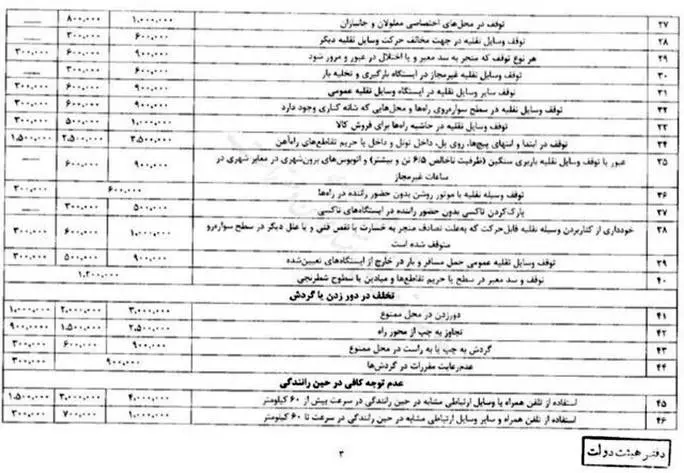 ۲۷ توقف در محل‌های اختصاصی معلولان و جانبازان ۱,۰۰۰,۰۰۰ ۸۰۰,۰۰۰ ——
۲۸ توقف وسایل نقلیه در جهت مخالف حرکت وسایل نقلیه دیگر ۶۰۰,۰۰۰ ۳۰۰,۰۰۰ ——
۲۹ هر نوع توقف که منجر به سد معبر و یا اختلال در عبور و مرور شود ۹۰۰,۰۰۰ ۶۰۰,۰۰۰ ۳۰۰,۰۰۰
۳۰ توقف وسایل نقلیه غیرمجاز در ایستگاه بارگیری و تخلیه بار ۶۰۰,۰۰۰ ۳۰۰,۰۰۰ ——
۳۱ توقف سایر وسایل نقلیه در ایستگاه وسایل نقلیه عمومی ۹۰۰,۰۰۰ ۶۰۰,۰۰۰ ۳۰۰,۰۰۰
۳۲ توقف وسایل نقلیه در سطح سواره‌روی راه‌ها و محل‌هایی که شانه کناری وجود دارد ۹۰۰,۰۰۰ ۶۰۰,۰۰۰ ۳۰۰,۰۰۰
۳۳ توقف وسایل نقلیه در حاشیه راه‌ها برای فروش کالا ۱,۰۰۰,۰۰۰ ۵۰۰,۰۰۰ ۳۰۰,۰۰۰
۳۴ توقف در ابتدا و انتهای پیچ‌ها، روی پل، داخل تونل و داخل یا حریم تقاطع‌های راه‌آهن ۳,۵۰۰,۰۰۰ ۲,۵۰۰,۰۰۰ ۱,۵۰۰,۰۰۰
۳۵ عبور یا توقف وسایل نقلیه باربری سنگین (ظرفیت ناخالص ۶/۵ تن و بیشتر) و اتوبوس‌های برون‌شهری در معابر شهری در
ساعات غیرمجاز ۹۰۰,۰۰۰ ۶۰۰,۰۰۰ ——
۳۶ توقف وسیله نقلیه با موتور روشن بدون حضور راننده در راه‌ها ۶۰۰,۰۰۰ ۳۰۰,۰۰۰
۳۷ پارک‌کردن تاکسی بدون حضور راننده در ایستگاه‌های تاکسی ۵۰۰,۰۰۰ ۳۰۰,۰۰۰ ——
۳۸ خودداری از کناربردن وسیله نقلیه قابل‌حرکت که به‌علت تصادف منجر به خسارت یا نقص فنی و یا علل دیگر در سطح سواره‌رو
متوقف شده است ۱,۰۰۰,۰۰۰ ۶۰۰,۰۰۰ ۳۰۰,۰۰۰
۳۹ توقف وسایل نقلیه عمومی حمل مسافر و بار در خارج از ایستگاه‌های تعیین‌شده ۹۰۰,۰۰۰ ۵۰۰,۰۰۰ ۳۰۰,۰۰۰
۴۰ توقف و سد معبر در سطح یا حریم تقاطع‌ها و میادین با سطوح شطرنجی ۱,۲۰۰,۰۰۰
تخلف در دور زدن یا گردش
۴۱ دورزدن در محل ممنوع ۳,۰۰۰,۰۰۰ ۲,۰۰۰,۰۰۰ ۱,۰۰۰,۰۰۰
۴۲ تجاوز به چپ از محور راه ۲,۵۰۰,۰۰۰ ۱,۵۰۰,۰۰۰ ۹۰۰,۰۰۰
۴۳ گردش به چپ یا به راست در محل ممنوع ۹۰۰,۰۰۰ ۶۰۰,۰۰۰ ۳۰۰,۰۰۰
۴۴ عدم‌رعایت مقررات در گردش‌ها ۹۰۰,۰۰۰ ۳۰۰,۰۰۰
عدم توجه کافی در حین رانندگی
۴۵ استفاده از تلفن همراه یا وسایل ارتباطی مشابه در حین رانندگی در سرعت بیش از ۶۰ کیلومتر ۴,۰۰۰,۰۰۰ ۳,۰۰۰,۰۰۰ ۱,۵۰۰,۰۰۰
۴۶ استفاده از تلفن همراه و سایر وسایل ارتباطی مشابه در حین رانندگی در سرعت تا ۶۰ کیلومتر ۱,۰۰۰,۰۰۰ ۷۰۰,۰۰۰ ۳۰۰,۰۰۰
۳
دفتر هیئت دولت